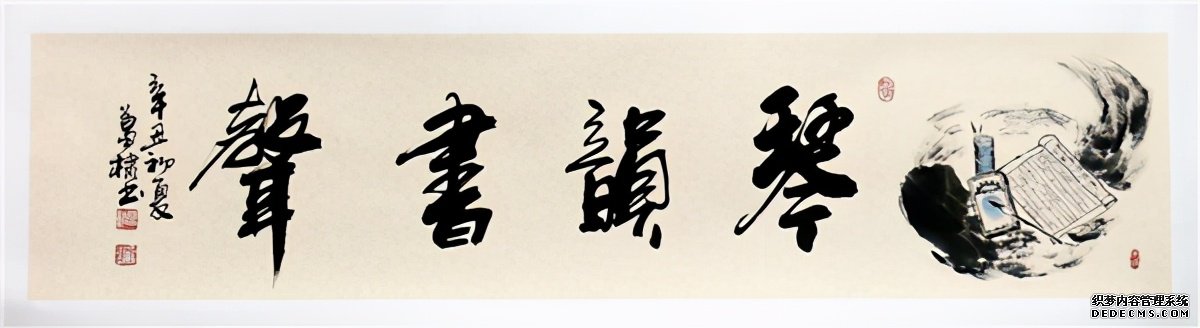 琴韻書聲
辛丑初夏
萬棣书
织梦内容管理系统
DEDECMS.COM